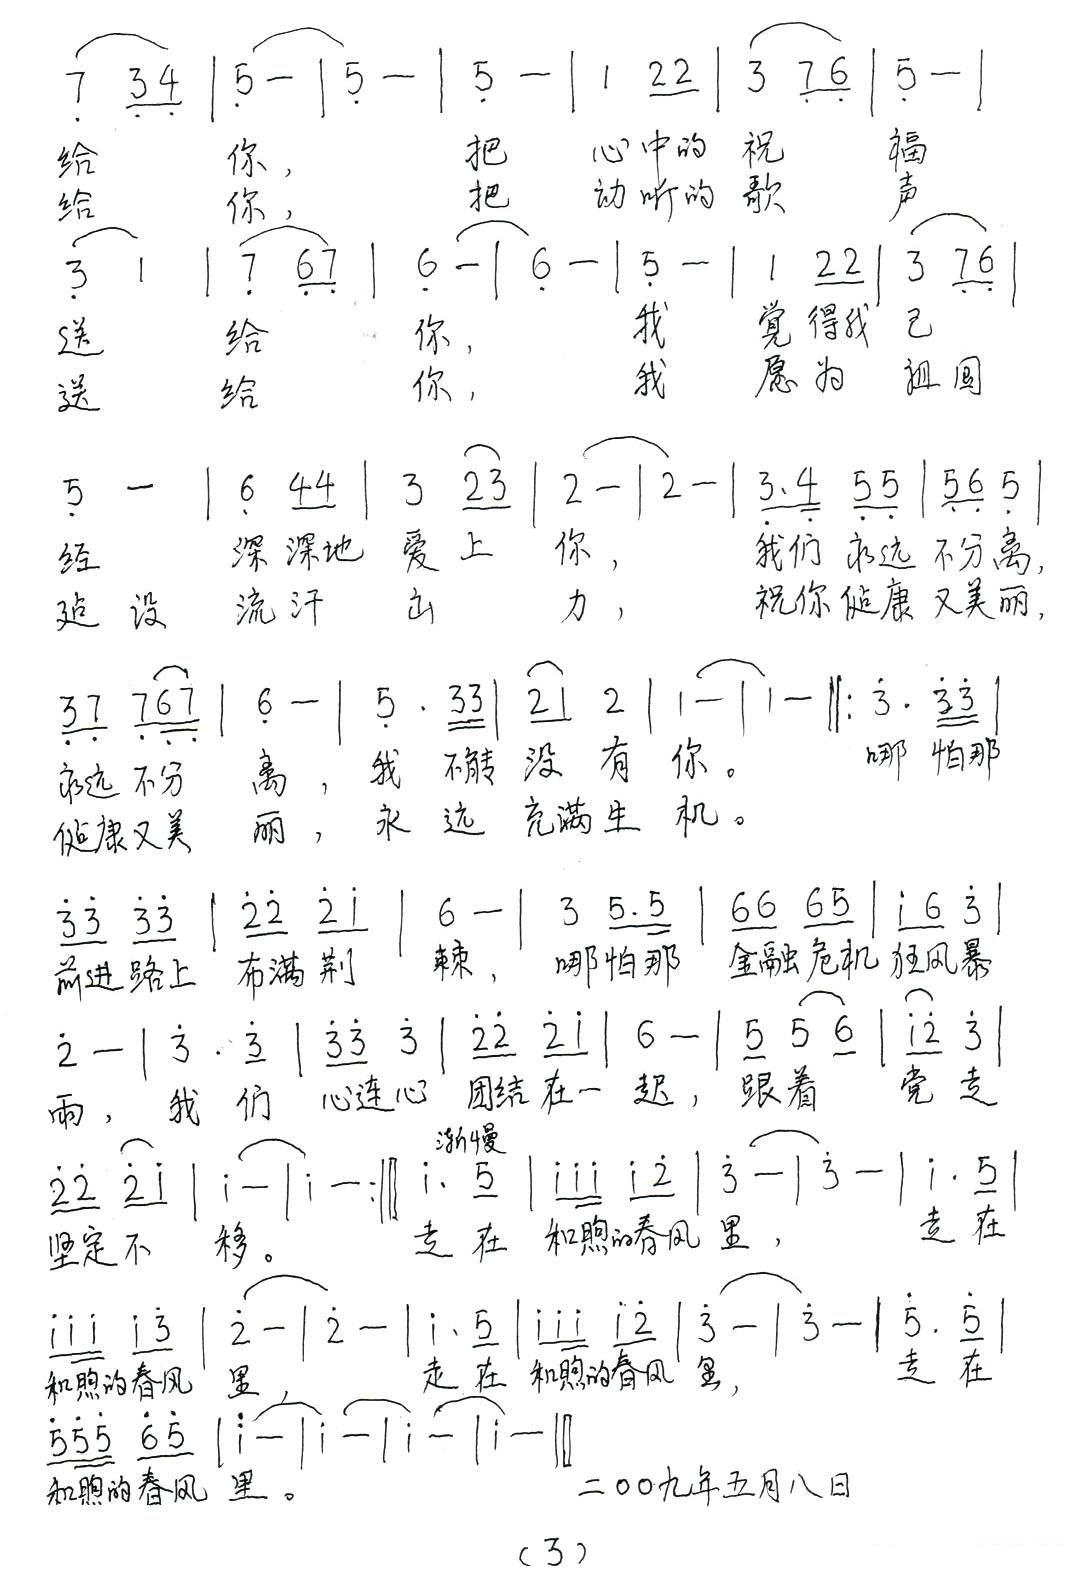 7 34 | 5 — | 5 — | 5 — | 1 22 | 3 76 | 5 — |
给 你, 把 心中的 祝 福
给 你, 把 动听的 歌 声
3 1 | 7 67 | 6 — | 6 — | 5 — | 1 22 | 3 76 |
送 给 你, 我 觉得我 已
送 给 你, 我 愿为 祖国
5 — | 6 44 | 3 23 | 2 — | 2 — | 3.4 55 | 56 5 |
经 深深地 爱上 你, 我们永远不分离,
建设 流汗 出 力, 祝你健康又美丽,
37 767 | 6 — | 5 . 33 | 21 2 | 1 — | 1 — ‖: 3 . 33 |
永远不分 离, 我 不能 没有你。 哪 怕那
健康又美 丽, 永 远 充满生 机。
33 33 | 22 21 | 6 — | 3 5.5 | 66 65 | 1 6 3 |
前进路上 布满荆 棘, 哪怕那 金融危机 狂风暴
2 — | 3 . 3 | 33 3 | 22 21 | 6 — | 5 5 6 | 12 3 |
雨, 我 们 心连心 团结在一 起, 跟着 党走
渐慢
22 21 | 1 — | 1 — :‖ 1 . 5 | 111 12 | 3 — | 3 — | 1 . 5 |
坚定不 移。 走在 和煦的春风 里, 走在
111 13 | 2 — | 2 — | 1 . 5 | 111 12 | 3 — | 3 — | 5 . 5 |
和煦的春风 里, 走在 和煦的春风 里, 走在
555 65 | 1 — | 1 — | 1 — | 1 — ‖
和煦的春风 里。 二〇〇九年五月八日
(3)